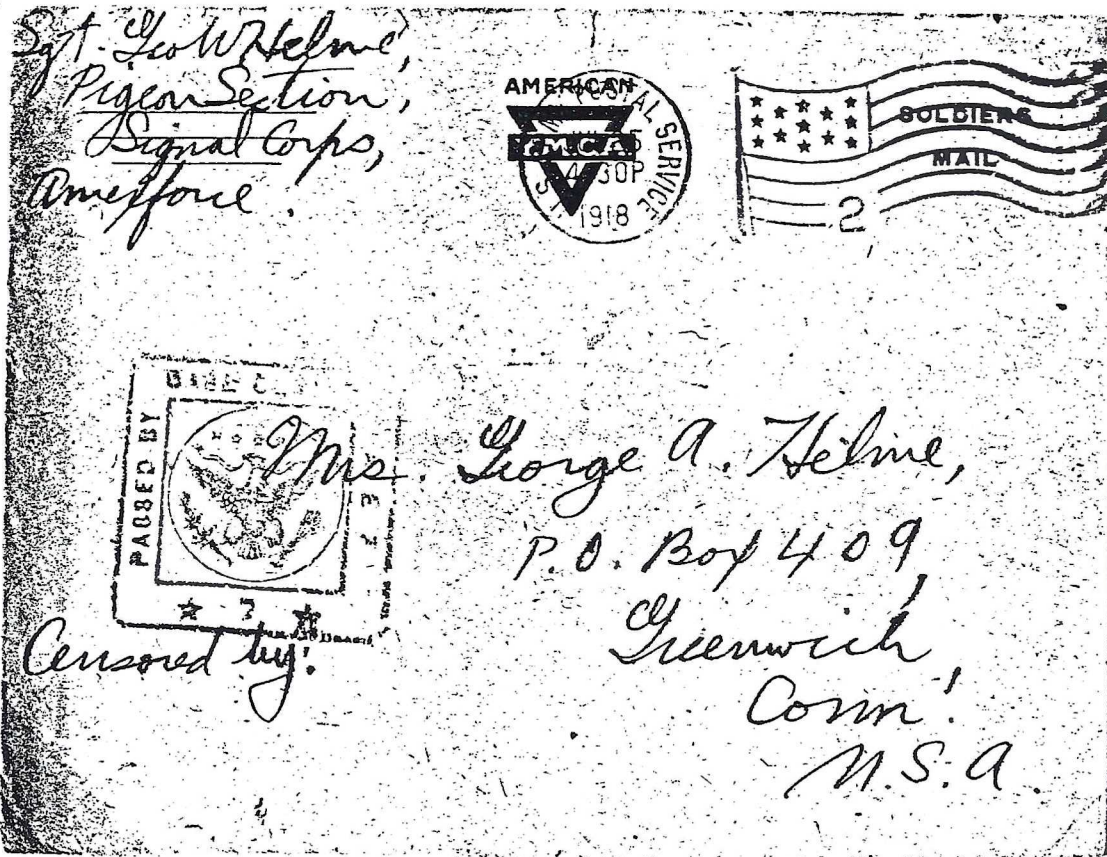 Sgt. Geo W Helme,
Pigeon Section,
Signal Corps,
Amexforce.
AMERICAN
Y.M.C.A.
POSTAL SERVICE
4 30P
1918
SOLDIERS
MAIL
2
PASSED BY
Mrs. George A. Helme,
P.O. Box 409,
Greenwich,
Conn.
U.S.A.
Censored by: